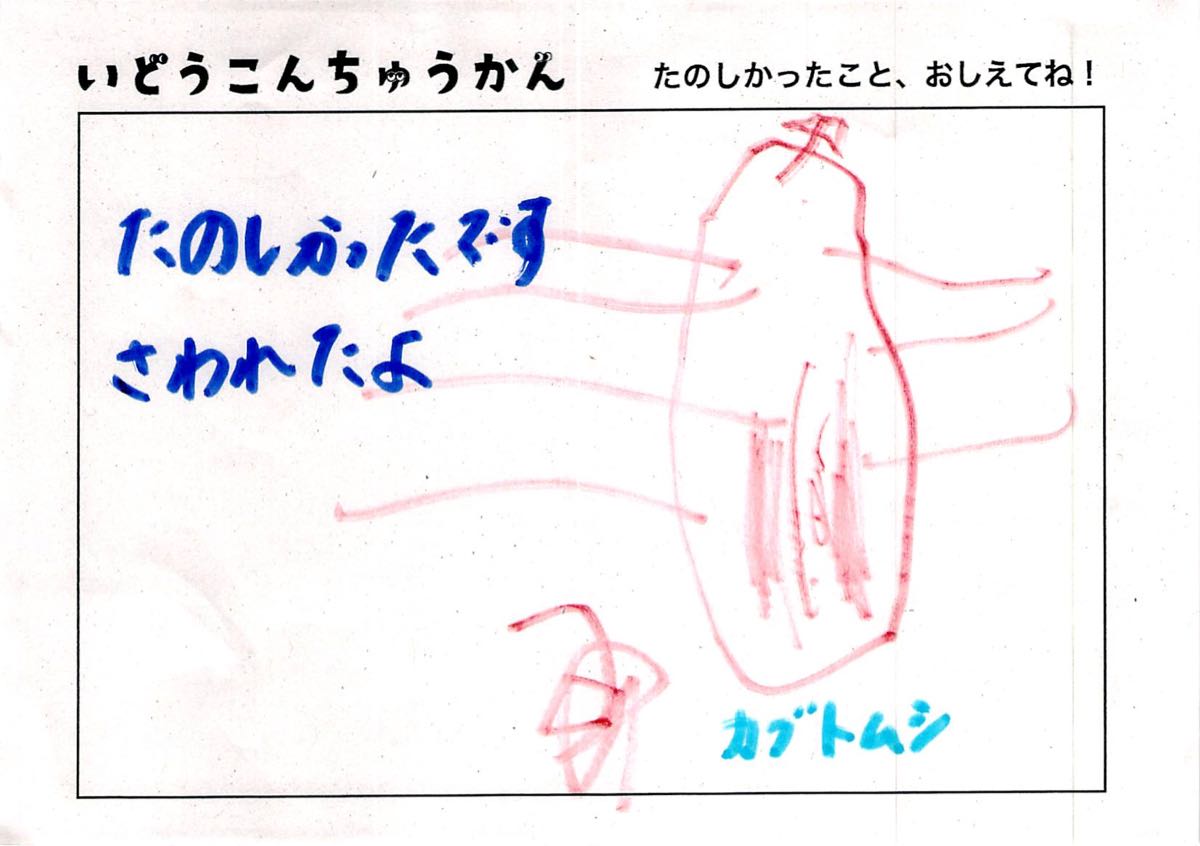 いどうこんちゅうかん
たのしかったこと、おしえてね！
たのしかったです
さわれたよ
カブトムシ